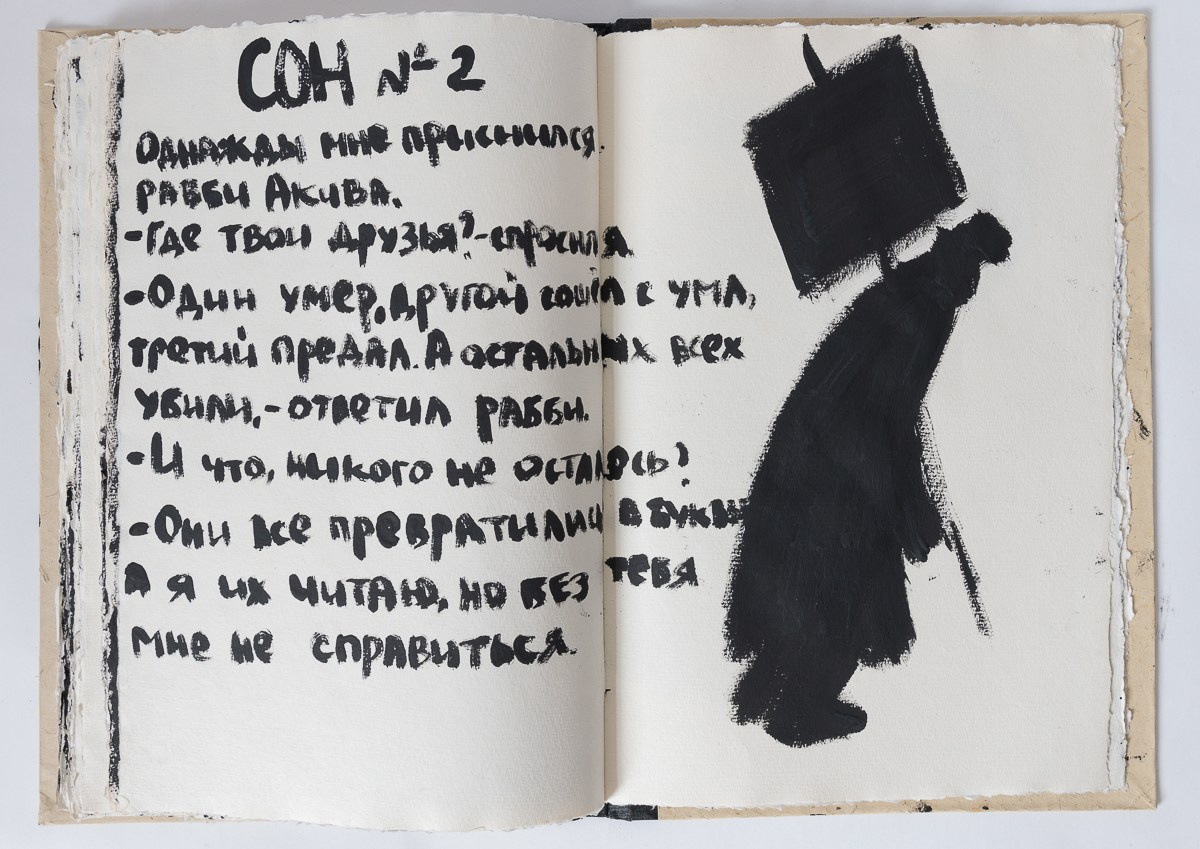 СОН № 2
Однажды мне приснился
рабби Акива.
-Где твои друзья?-спросил я.
-Один умер, другой сошёл с ума,
третий предал. А остальных всех
убили,-ответил рабби.
-И что, никого не осталось?
-Они все превратились в буквы
А я их читаю, но без тебя
мне не справиться.